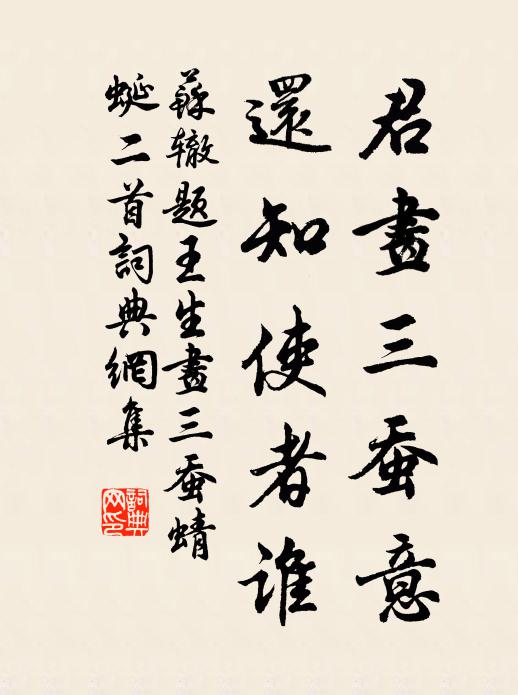 君畫三蚕意
還知使者誰
蘇辙题王生畫三蚕蜻
蜓二首詞典網集
詞典
网印